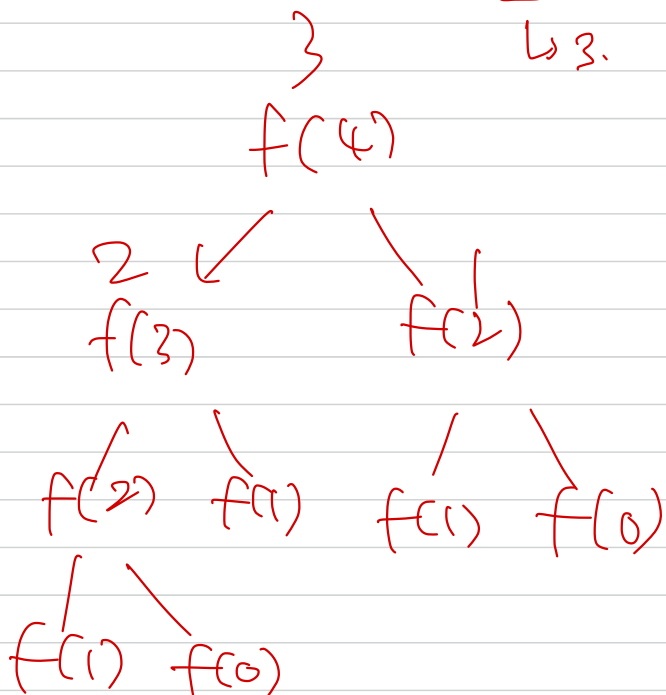 ↳ 3.
3
f(4)
2 1
f(3) f(2)
f(2) f(1) f(1) f(0)
f(1) f(0)